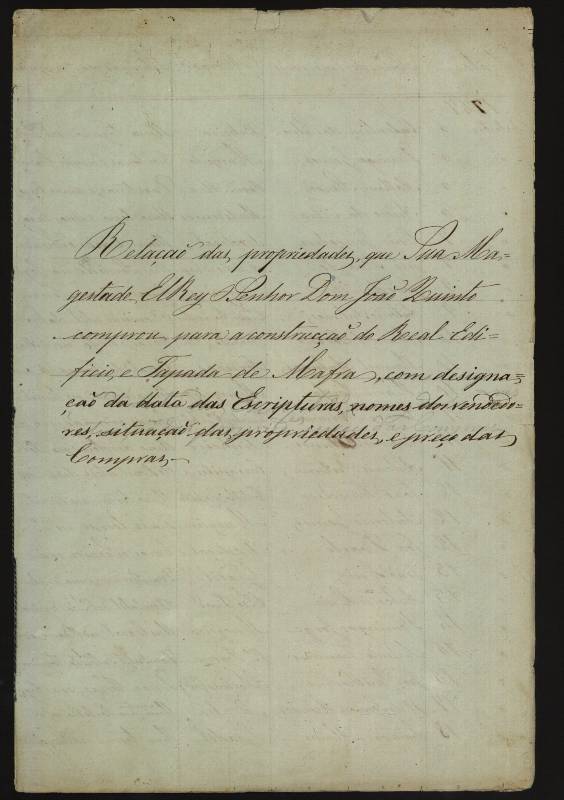 7
Relação das propriedades, que Sua Ma-
gestade ElRey Senhor Dom João Quinto
comprou para a construcção do Real Edi-
ficio, e Tapada de Mafra, com designa-
ção da data das Escripturas, nomes dos vendedo-
res, situação das propriedades, e preço das
Compras.